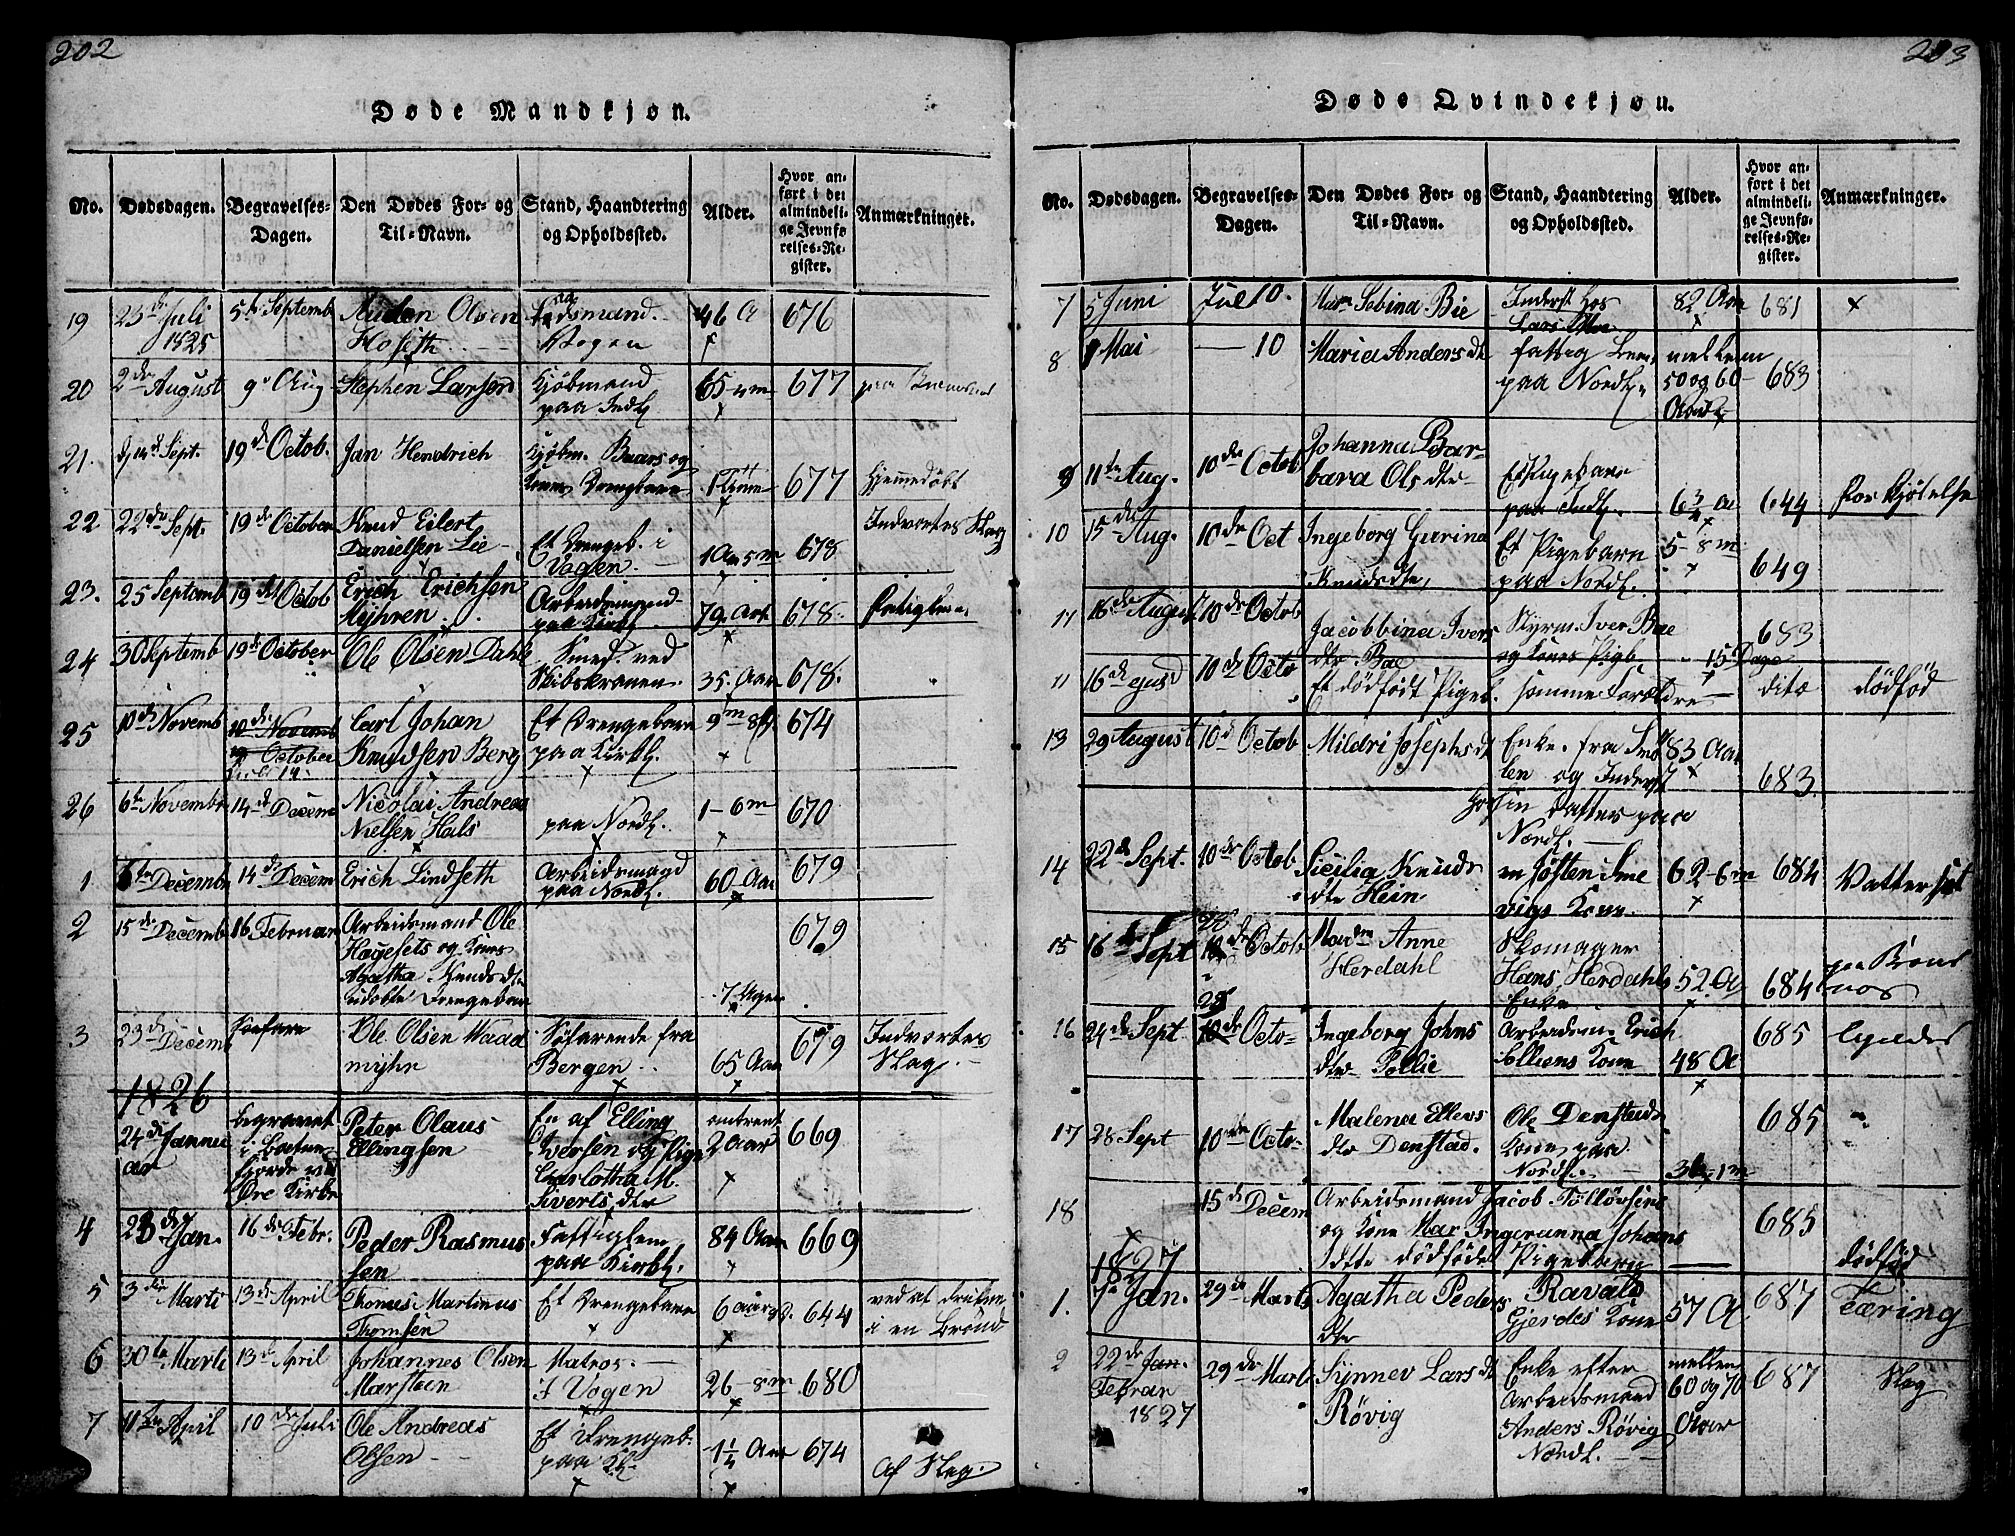 202
Døde Mandkjøn.
No. Dødsdagen. Begravelses-Dagen. Den Dødes For- og Til-Navn. Stand, Haandtering og Opholdssted. Alder. Hvor anført i det almindelige Jevnførelses-Register. Anmærkninger.
19 23de Juli 1825 5te Septemb Auden Olsen Hoseth 46 A 676
20 2den August 9de Aug Stephen Larsen Kjøbmand paa Indl. 65-4m 677
21. Sept. 19de Octob. Jan Hendrich Kjøbm. Baars og Drengebarn 1 Time 677 Hjemmedøbt
22 22de Sept. 19de October Knud Eilert Danielsen Lie Et Drengeb. i Vogen. 1 Aar 5m 678 Indvortes Slag
23. 25 Septemb 19de Octob Erich Erichsen Myhren. Arbeidsmand paa Kirkl. 79. Aar 678.
24 30 Septemb 19de October Ole Olsen Dahl Smed ved Skibskranen. 35. Aar 678.
25 10de Novemb 10de Novemb October Carl Johan Knudsen Berg Et Drengebarn paa Kirkl. 9m 674
26 6te Novembr 14de Decem Nicolai Andreas Nielsen Hals paa Nordl. 1-6m 670
1 6te Decemb 14de Decem Erich Lindseth Arbeidsmand paa Nordl. 60 Aar 679
2 15de Decemb 16 Februar Arbeidsmand Ole Hagesets og Kones Agatha Knudsdtr udøbte Drengebarn 7 Uger 679
3 23de Decemb Ole Olsen Waadmyhr Søfarende fra Bergen 65 Aar 679 Indvortes Slag.
1826
24de Januar begravet i Øre Kirke Peter Olaus Ellingsen En af Elling Iversen og Pige Charlotha M. Sivertsdtr omtrent 2 Aar 669
4 23de Jan. 16de Febr. Peder Rasmussen Fattiglem paa Kirkl. 84 Aar 669
5 3die Marti 13de April Thomas Martinus Thomsen Et Drengebarn 6 aar 644 ved at drukne i en Brønd
6 30te Marti 13de April Johannes Olsen Marsteen Matros i Vogen 26-8m 680
7 11te April 10de Juli Ole Andreas Olsen Et Drengeb. paa Kl. 1 1/4 Aar 674 Af Slag.
203
Døde Qvindekjøn.
No. Dødsdagen. Begravelses-Dagen. Den Dødes For- og Til-Navn. Stand, Haandtering og Opholdssted. Alder. Hvor anført i det almindelige Jevnførelses-Register. Anmærkninger.
7 5 Juni Jul 10. Mam Sebina Bie Inderst hos Lars 82 Aar 681
8 Mai 10 Maria Andersdtr fattig Lem paa Nordl. mellem 50 og 60 Aar 683
9 11te Aug. 10de Octob Johanna Barbara Olsdtr Et Pigebarn paa Indl. 644 Forkjølelse
10 15de Aug. 10de Oct Ingeborg Gurina Knudsdtr, Et Pigebarn paa Nordl. 5-8m 649
11 16de August 10de Octob Jacobbina Iversdtr Bae Styrm. Iver Bae og Kones Pigb. 15 Dage 683
11 16de ejusd 10de Octo Et dødfødt Pigeb. samme Forældre ditto dødfød
13 29 August 10d Octob Mildri Josephsdt Enke fra Smølen og Inderst hos sin Datter paa Nordl. 83 Aar 683
14 22de Sept. 10de Octob Sicilia Knudsdtr Hein 62-6m 684 Vattersot
15 16de Sept 10de Octob Madme Anne Herdahl Skomager Hans Herdahls Enke 52. A 684
16 24de Sept 10de Octo Ingeborg Johnsdtr Sollie Arbeidsm. Erich Solliens Kone 48 A 685
17 28 Sept 10de Octo Malena Ellersdtr Denstad. Ole Denstads Kone paa Nordl. 36-1m 685
18 15de Decem Arbeidsmand Jacob Tolløvsens og Kone Mar Ingeranna Johansdtte dødføde Pigebarn 685 dødfød
1827
1. 7de Jan. 29de Marts Agatha Pedersdtr Ravald Gjerdes Kone 57 A. 687 Tæring
2 22de Jan. Februar 1827 29de Marts Synnev Larsdt Røvig Enke efter Arbeidsmand Anders Røvig Nordl. mellem 60 og 70 Aar 687 Slag